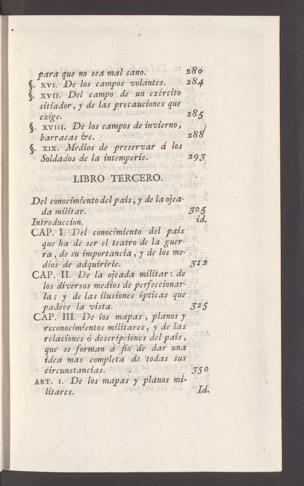 para que no sea mal sano. 280
§. XVI. De los campos volantes. 284
§. XVII. Del campo de un exército
sitiador, y de las precauciones que
exige. 285
§. XVIII. De los campos de invierno,
barracas &c. 288
§. XIX. Medios de preservar á los
Soldados de la intemperie. 293
LIBRO TERCERO.
Del conocimiento del pais, y de la ojea-
da militar. 305
Introduccion. id.
CAP. I. Del conocimiento del pais
que ha de ser el teatro de la guer-
ra, de su importancia, y de los me-
dios de adquirirle. 312
CAP. II. De la ojeada militar: de
los diversos medios de perfeccionar-
la; y de las ilusiones ópticas que
padece la vista. 325
CAP. III. De los mapas, planos y
reconocimientos militares, y de las
relaciones ó descripciones del pais,
que se forman á fin de dar una
idea mas completa de todas sus
circunstancias. 350
ART. I. De los mapas y planos mi-
litares. Id.